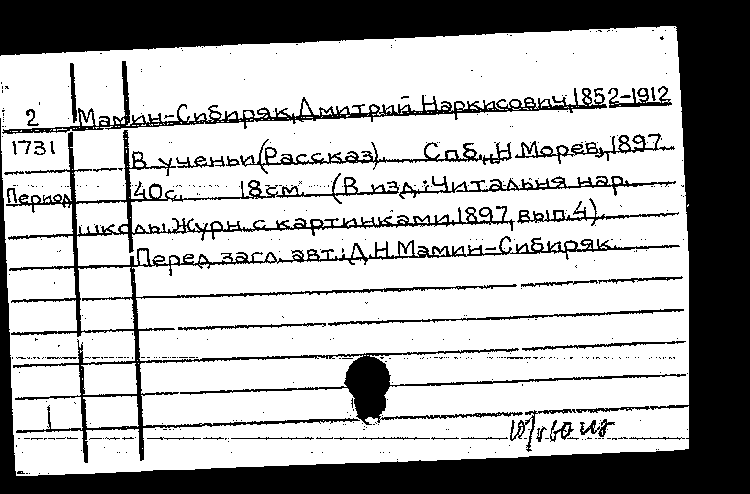 2 Мамин-Сибиряк, Дмитрий Наркисович, 1852-1912
1731 В ученьи (Рассказ). Спб., Н. Морев, 1897.
Период 40с. 18см. (В изд.: Читальня нар.
школы. Журн. с картинками. 1897, вып. 4).
Перед загл. авт.: Д.Н. Мамин-Сибиряк.